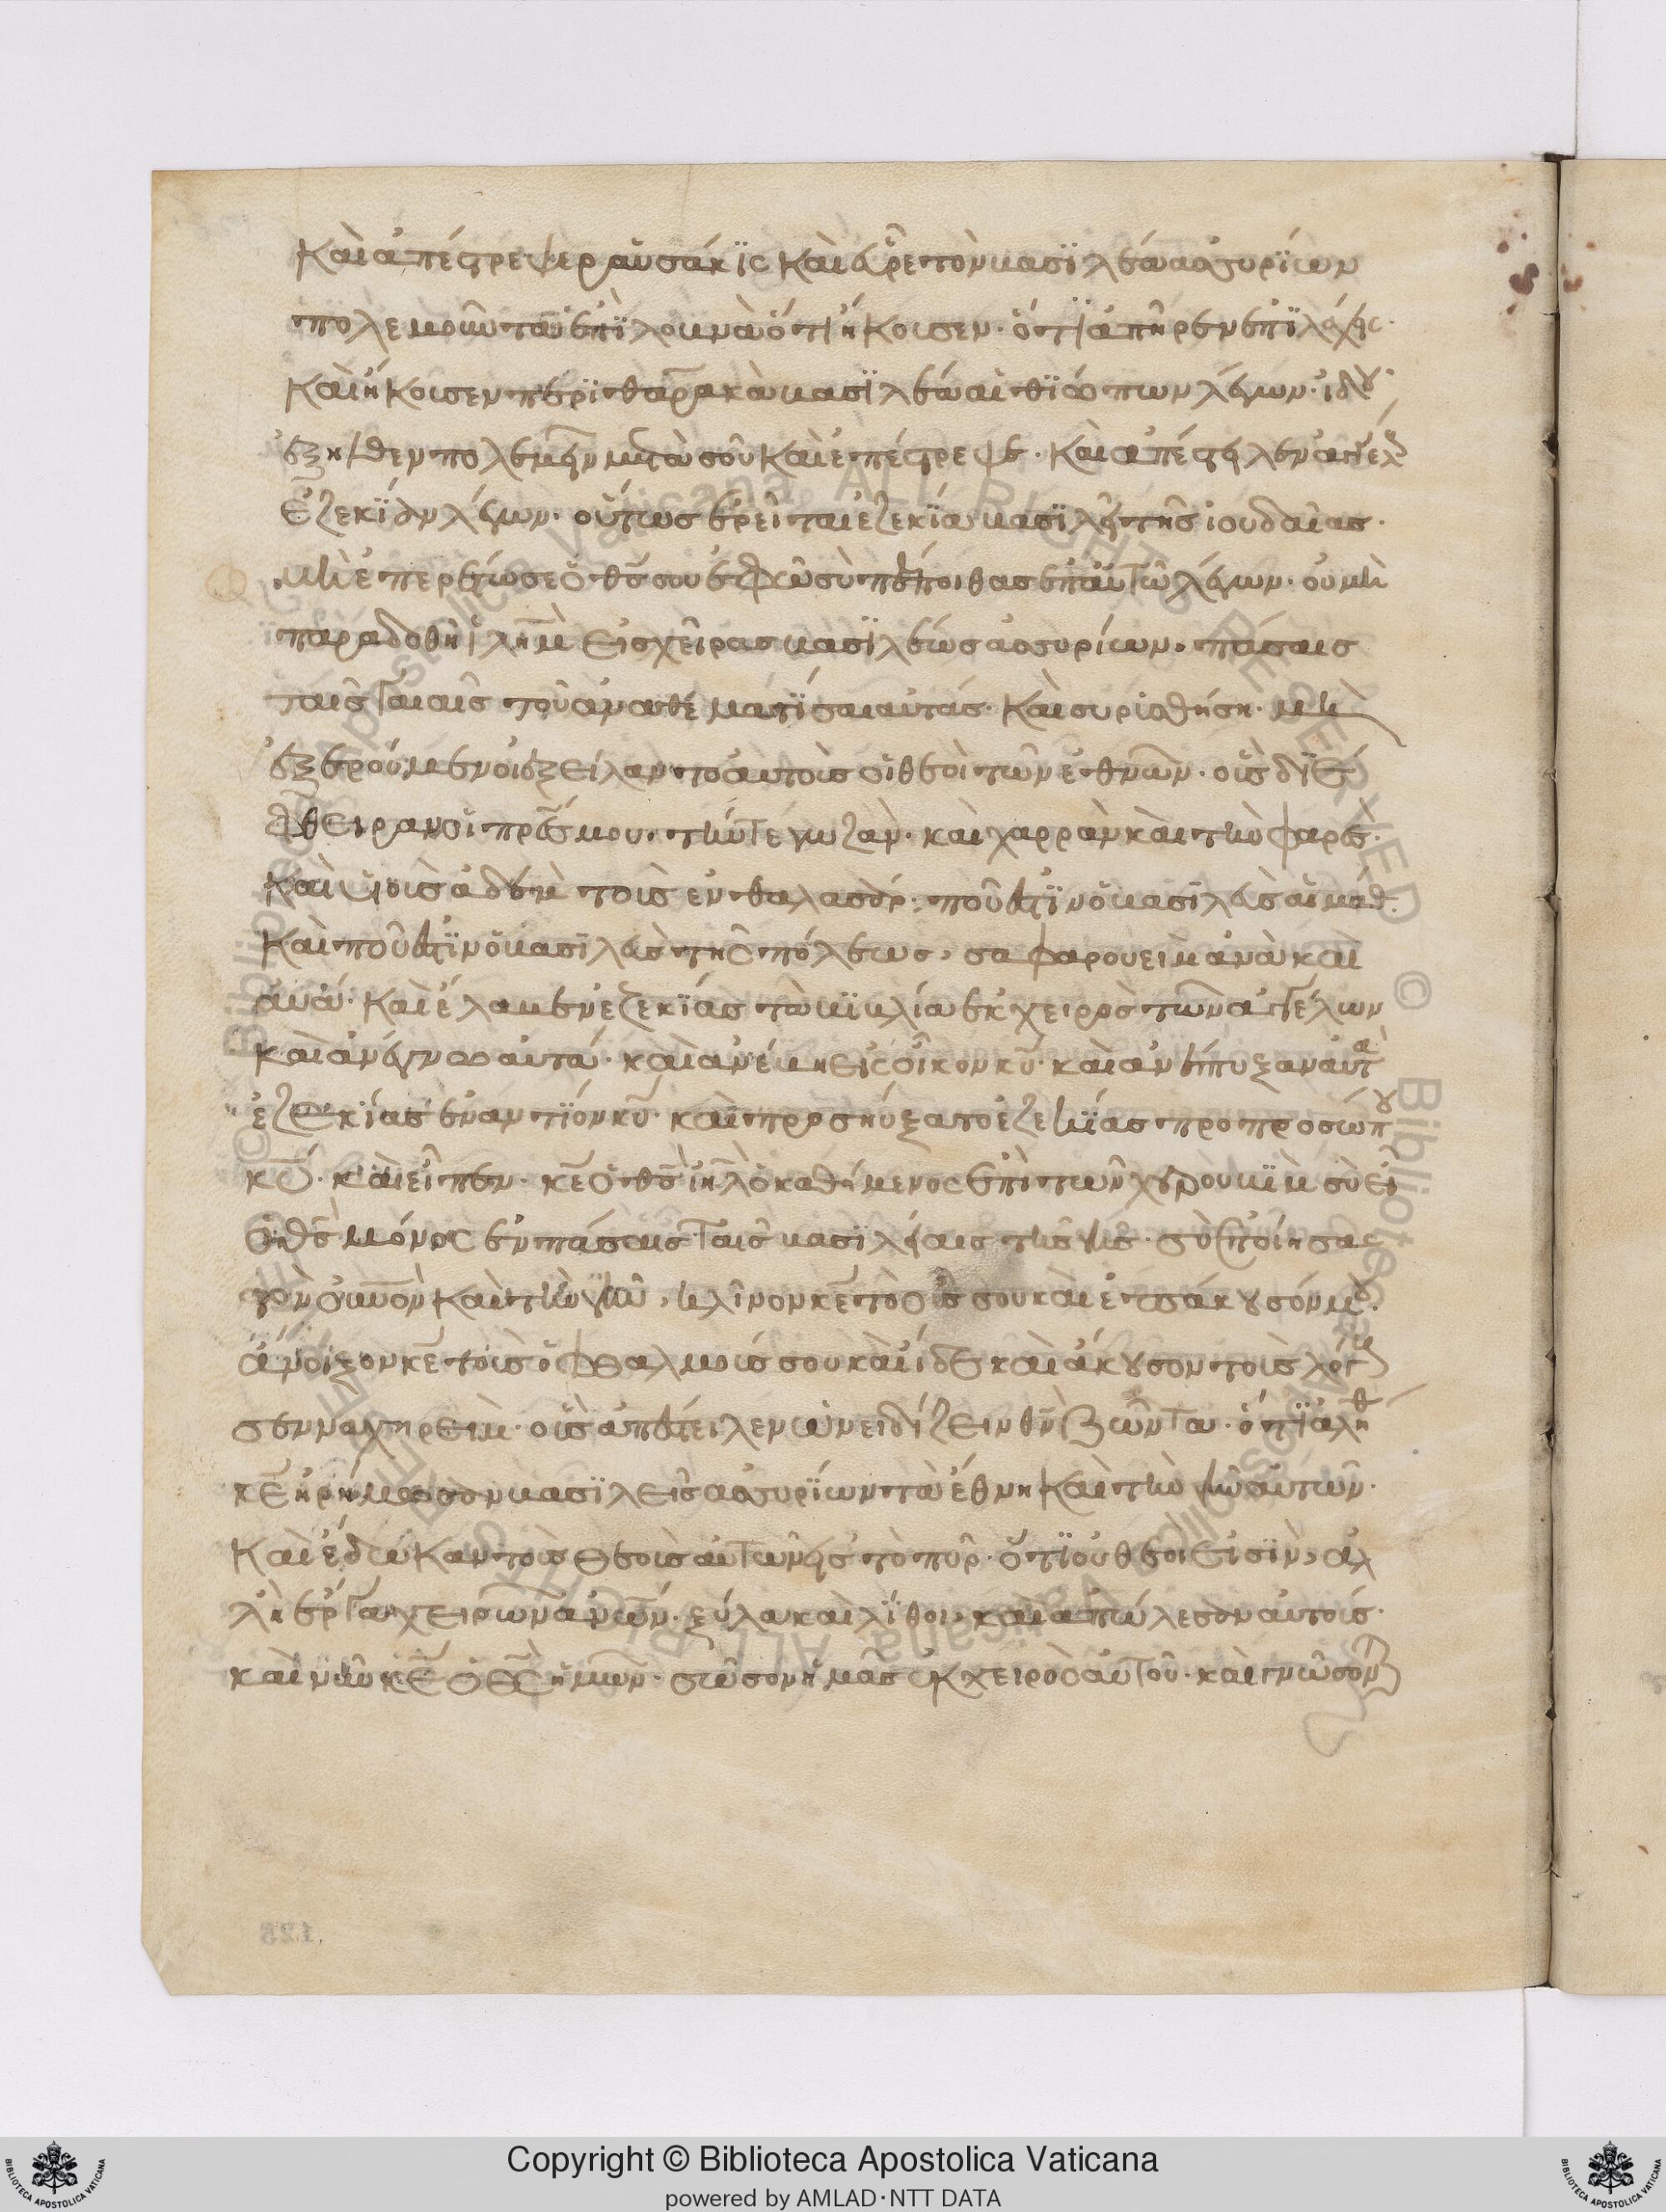 Καὶ ἀπέστρεψε ραψάκϊς καὶ εὗρε τὸν βασϊλέα ἀσσυρϊων
πολεμοῦντα ἐπὶ λομνὰ ὅτι ἤκουσεν. ὅτϊ ἀπῆρεν ἐπϊ λάχης.
Καὶ ἤκουσεν περὶ θαρακὰ βασϊλέα αἰθϊόπων λέγων. ἰδοὺ
ἐξῆλθεν πολεμεῖν μετὰ σοῦ καὶ ἐπέστρεψε. Καὶ ἀπέστειλεν ἀγγέλ
Ἐζεκϊαν λέγων. οὕτως ἐρεῖται ἐζεκϊα βασϊλεῖ τῆς ἰουδαίας.
μὴ ἐπερέτωσε ὁ θς σου ἐφ ὧ σὺ πέποιθας ἐπ αυτῶ λέγων. οὐ μὴ
παραδοθῆ ϊλημ εἰς χεῖρας βασϊλέως ἀσσυρίων. πάσαις
ταῖς γαίαις τοῦ ἀναθεματϊσαι αὐτάς. Καὶ συ ρισθήση. μὴ
ἐξερούμενοι ἐξείλαντο αὐτοὺς οἱ θεοὶ τῶν ἐθνῶν. οὓς δϊέ
φθειραν οἱ πρες μου. τήν τε γωζὰν. καὶ χαρρὰν καὶ τὴν φαρές.
Καὶ υἱοὺς ἀδὲμ τοὺς ἐν θαλασάρ. ποῦ ἐστϊν ὁ βασϊλεὺς αἰμάθ.
Καὶ ποῦ ἐστϊν ὁ βασϊλεὺς τῆς πόλεως, σαφαρουεὶμ ἀνὰ καὶ
αυά. Καὶ ἔλαβεν ἐζεκϊας τὰ βϊβλία ἐκ χειρὸς τῶν ἀγγέλων
καὶ ἀνέγνω αὐτά. καὶ ἀνέβη εἰς οἶκον κυ. καὶ ἀνέπτυξαν αὐτὰ
ἐζεκϊας ἐναντϊον κυ. καὶ προσηύξατο ἐζεκϊας πρὸ προσώπου
κυ. καὶ εἶπεν. κε ὁ θς ιηλ ὁ καθήμενος ἐπὶ τῶν χερουβϊμ σὺ εἶ
ὁ θς μόνος ἐν πάσαις ταῖς βασϊλείαις τῆς γῆς. σὺ ἐποίησας
τὸν οὐνον καὶ τὴν γῆν, κλῖνον κε τὸ οὖς σου καὶ ἐπάκουσόν μου.
ἄνοιξον κε τοὺς ὀφθαλμούς σου καὶ ἴδε καὶ ἄκουσον τοὺς λόγους
σενναχηρειμ. οὓς ἀπέστειλεν ὠνειδίζειν θν ζῶντα. ὅτϊ ἀληθ
κε ἠρήμωσαν βασϊλεῖς ἀσσυρϊων τὰ ἔθνη καὶ τὴν γῆν αὐτῶν.
Καὶ ἔδωκαν τοὺς θεοὺς αὐτῶν εἰς τὸ πῦρ. ὅτϊ οὐ θεοὶ εἰσὶν, ἀλ
λ ἢ ἔργα χειρῶν ἀνων. ξύλα καὶ λϊθοι, καὶ ἀπώλεσαν αὐτούς.
καὶ νῦν κε ὁ θς ἡμῶν. σῶσον ἡμᾶς ἐκ χειρὸς αὐτοῦ. καὶ γνώσον
128
Copyright © Biblioteca Apostolica Vaticana
powered by AMLAD·NTT DATA